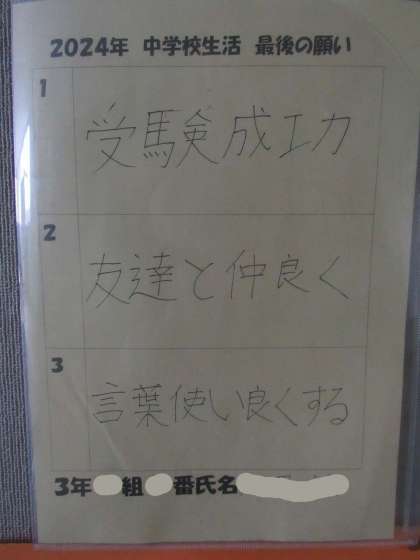 2024年 中学校生活 最後の願い
1
受験成工力
2
友達と仲良く
3
言葉使い良くする
3年 組 番氏名